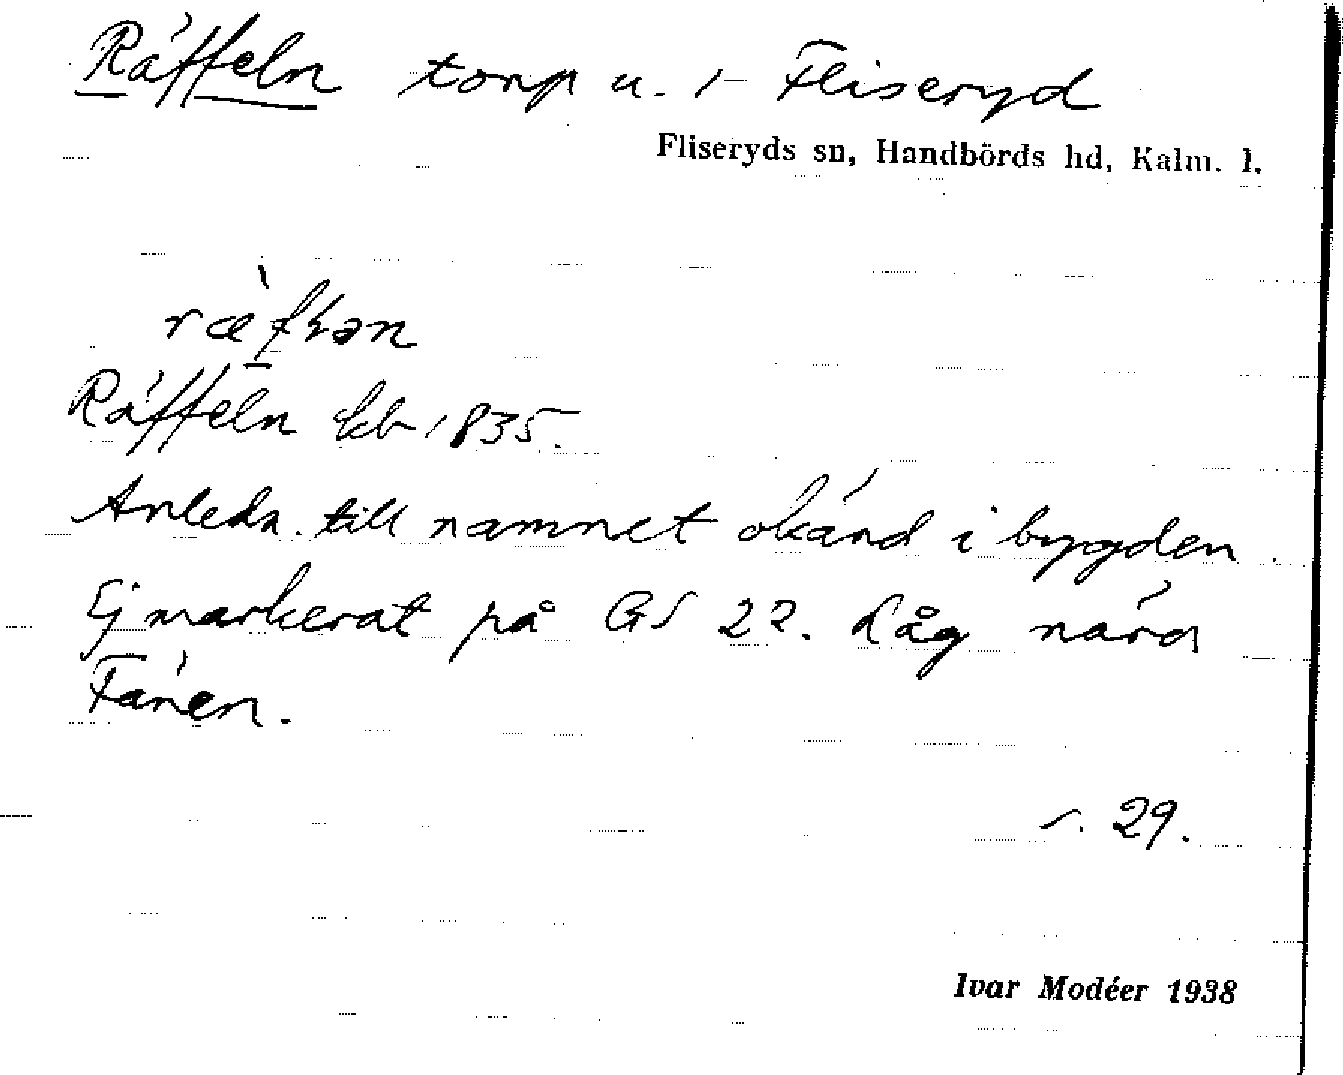 Räffeln torp u. 1 Fliseryd
Fliseryds sn, Handbörds hd, Kalm. l.
Räffeln kb 1835.
Anledn. till namnet okänd i bygden.
Ej markerat på GS 22. Låg nära
Fänen.
s. 29.
Ivar Modéer 1938